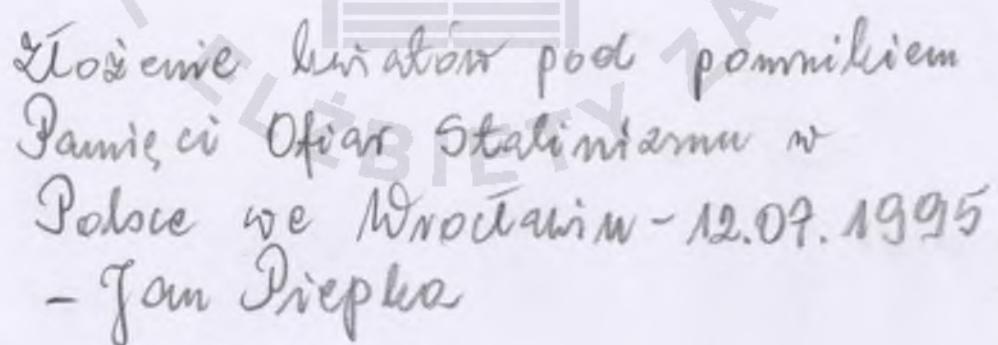 Złożenie kwiatów pod pomnikiem
Pamięci Ofiar Stalinizmu w
Polsce we Wrocławiu - 12.07.1995
- Jan Piepka
ELŻBIETY ZA